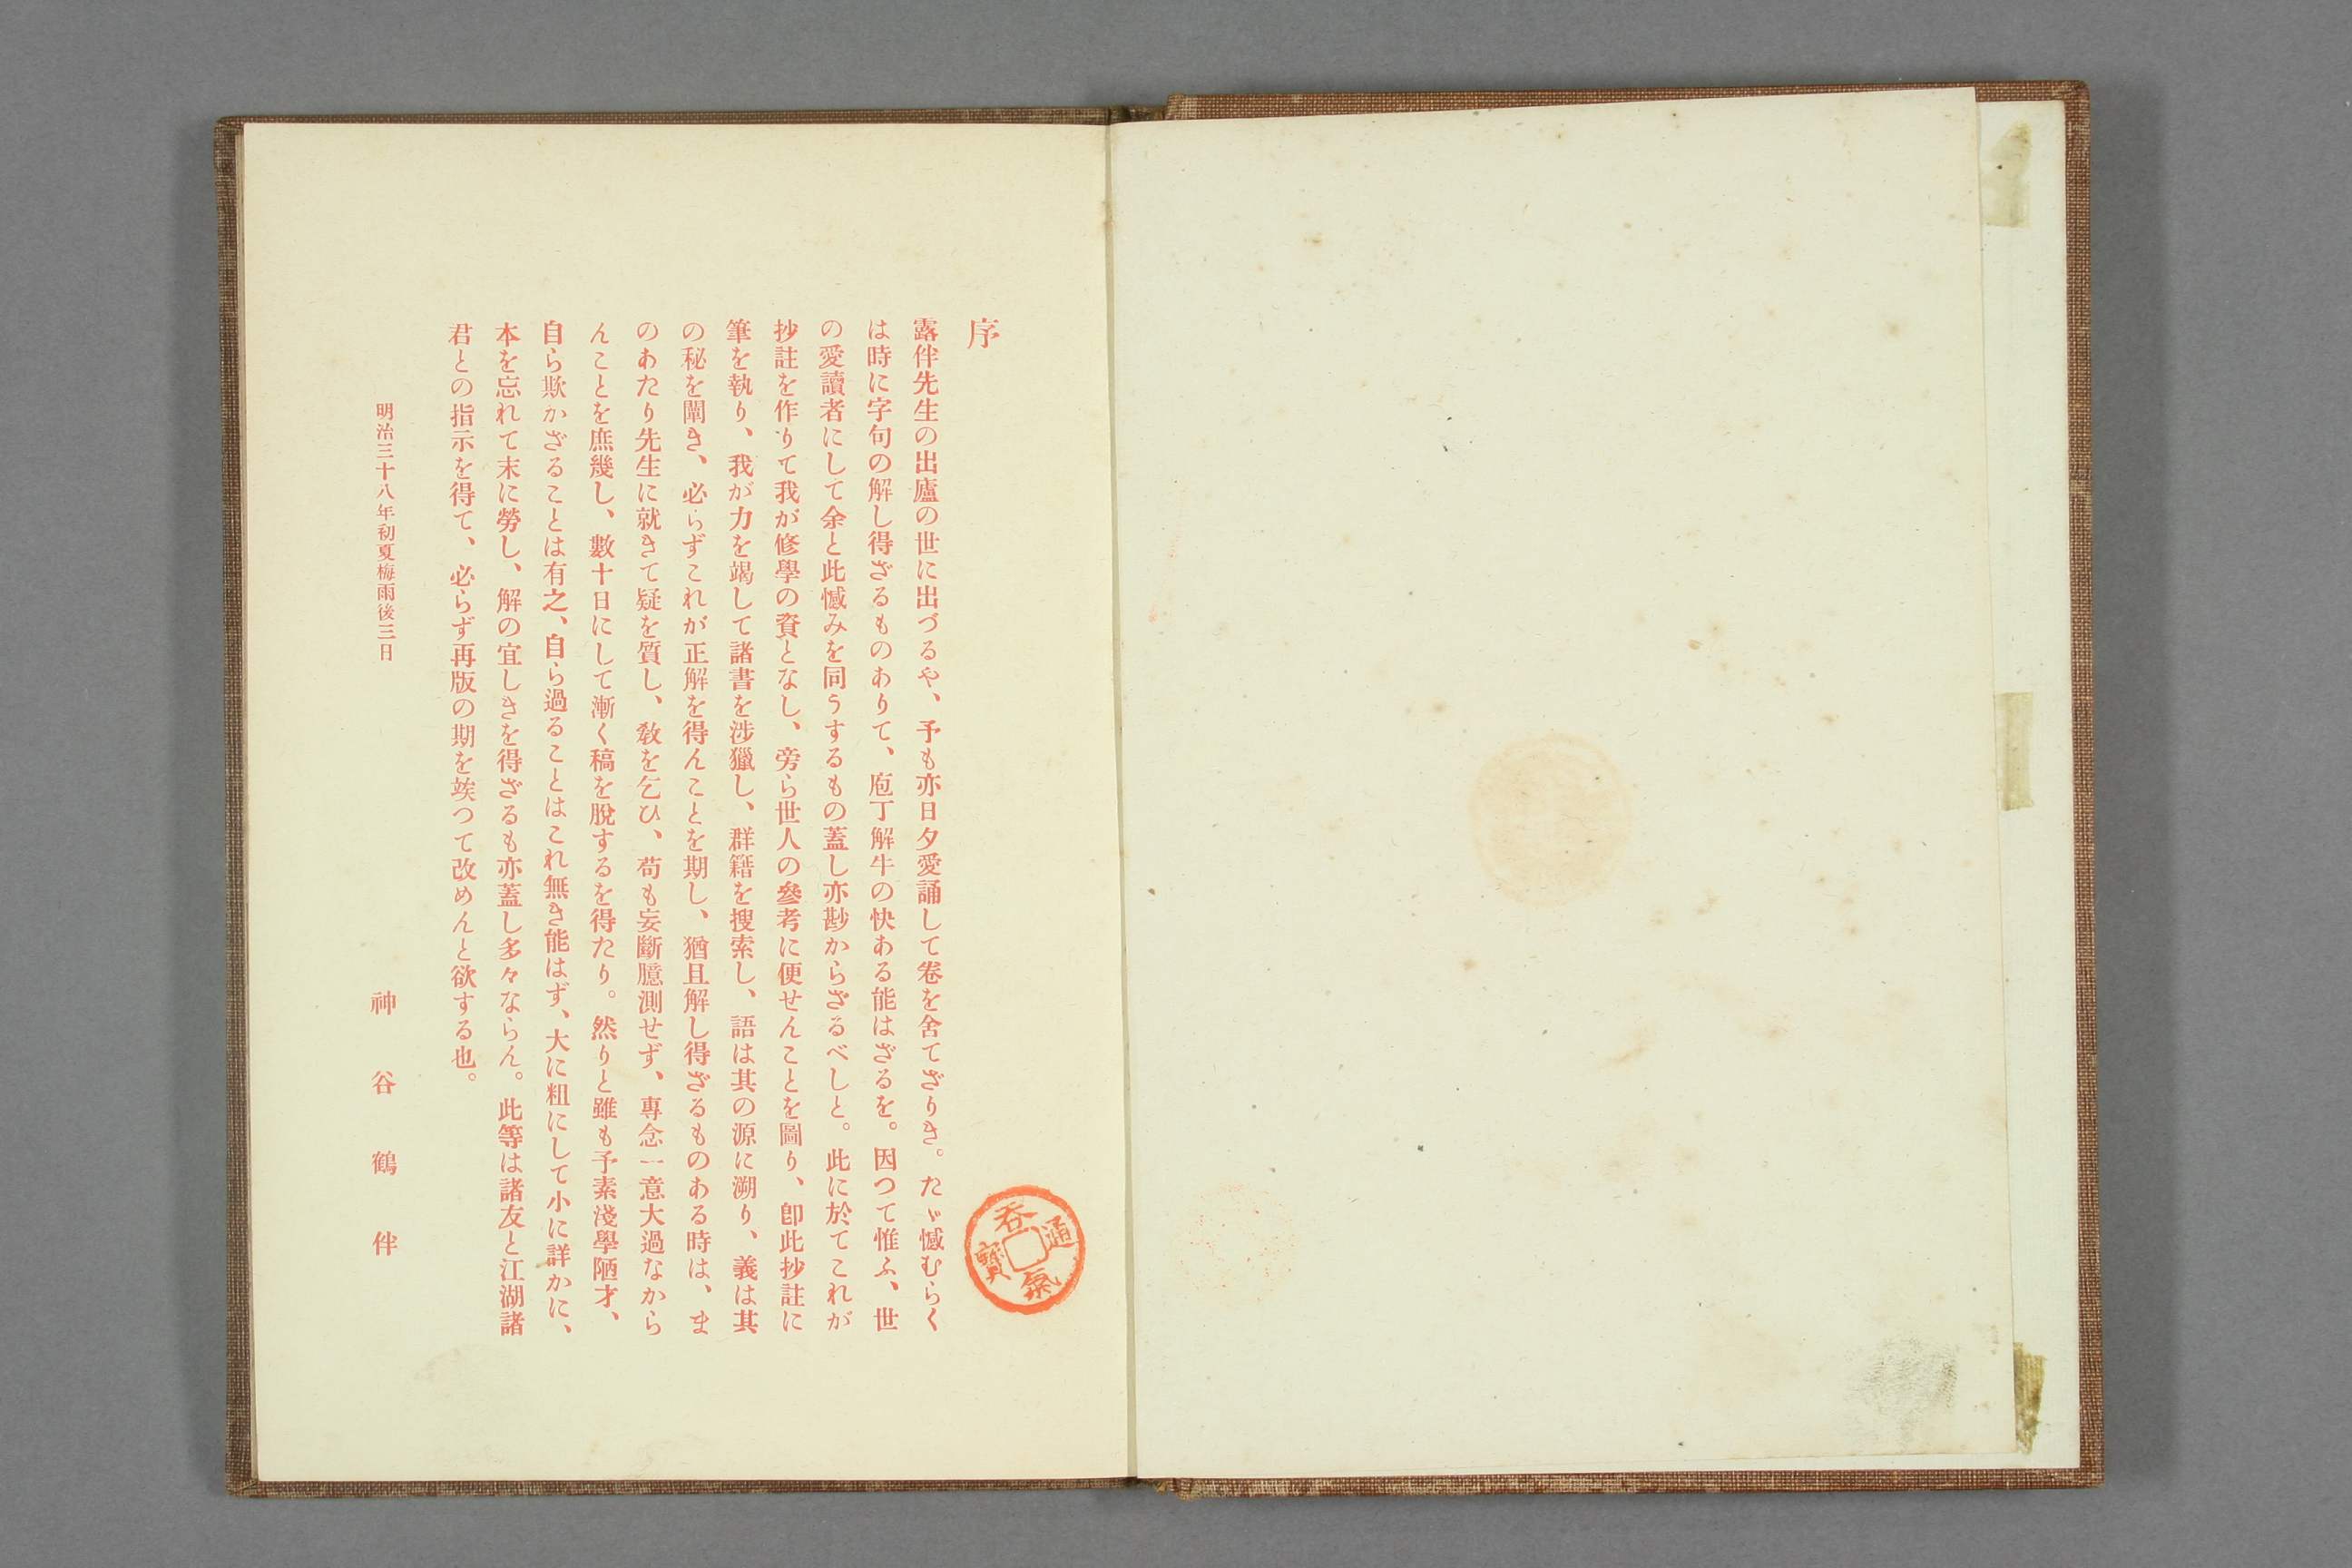 序
露伴先生の出廬の世に出づるや、予も亦日夕愛誦して卷を舍てざりき。たゞ憾むらく
は時に字句の解し得ざるものありて、庖丁解牛の快ある能はざるを。因つて惟ふ、世
の愛讀者にして余と此憾みを同うするもの蓋し亦尠からざるべしと。此に於てこれが
抄註を作りて我が修學の資となし、旁ら世人の參考に便せんことを圖り、卽此抄註に
筆を執り、我が力を竭して諸書を涉獵し、群籍を搜索し、語は其の源に溯り、義は其
の秘を闡き、必らずこれが正解を得んことを期し、猶且解し得ざるものある時は、ま
のあたり先生に就きて疑を質し、敎を乞ひ、苟も妄斷臆測せず、專念一意大過なから
んことを庶幾し、數十日にして漸く稿を脫するを得たり。然りと雖も予素淺學陋才、
自ら欺かざることは有之、自ら過ることはこれ無き能はず、大に粗にして小に詳かに、
本を忘れて末に勞し、解の宜しきを得ざるも亦蓋し多々ならん。此等は諸友と江湖諸
君との指示を得て、必らず再版の期を竢つて改めんと欲する也。
明治三十八年初夏梅雨後三日
神谷鶴伴
呑氣通寳